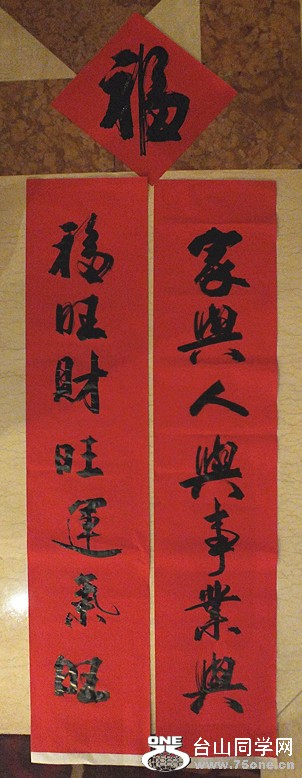 福
家興人興事業興
福旺財旺運氣旺
ONE
台山同学网
www.75one.cn